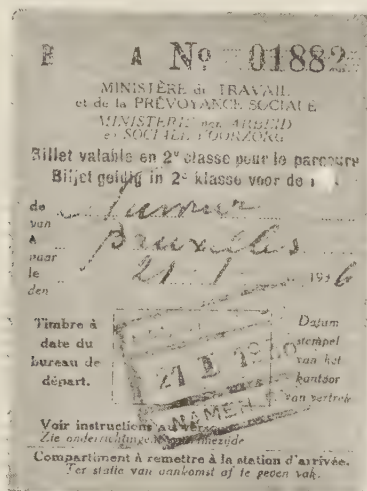 B A Nº 01882
MINISTÈRE du TRAVAIL
et de la PRÉVOYANCE SOCIALE
MINISTERIE van ARBEID
en SOCIALE VOORZORG
Billet valable en 2e classe pour le parcours
Biljet geldig in 2e klasse voor de
de
van
À Bruxelles
naar
le 21 1 1936
den
Timbre à
date du
bureau de
départ.
21 I
NAMEN
Datum
stempel
van het
kantoor
van vertrek
Voir instructions au verso
Zie onderrichtingen
Compartiment à remettre à la station d'arrivée.
Ter statie van aankomst af te geven vak.